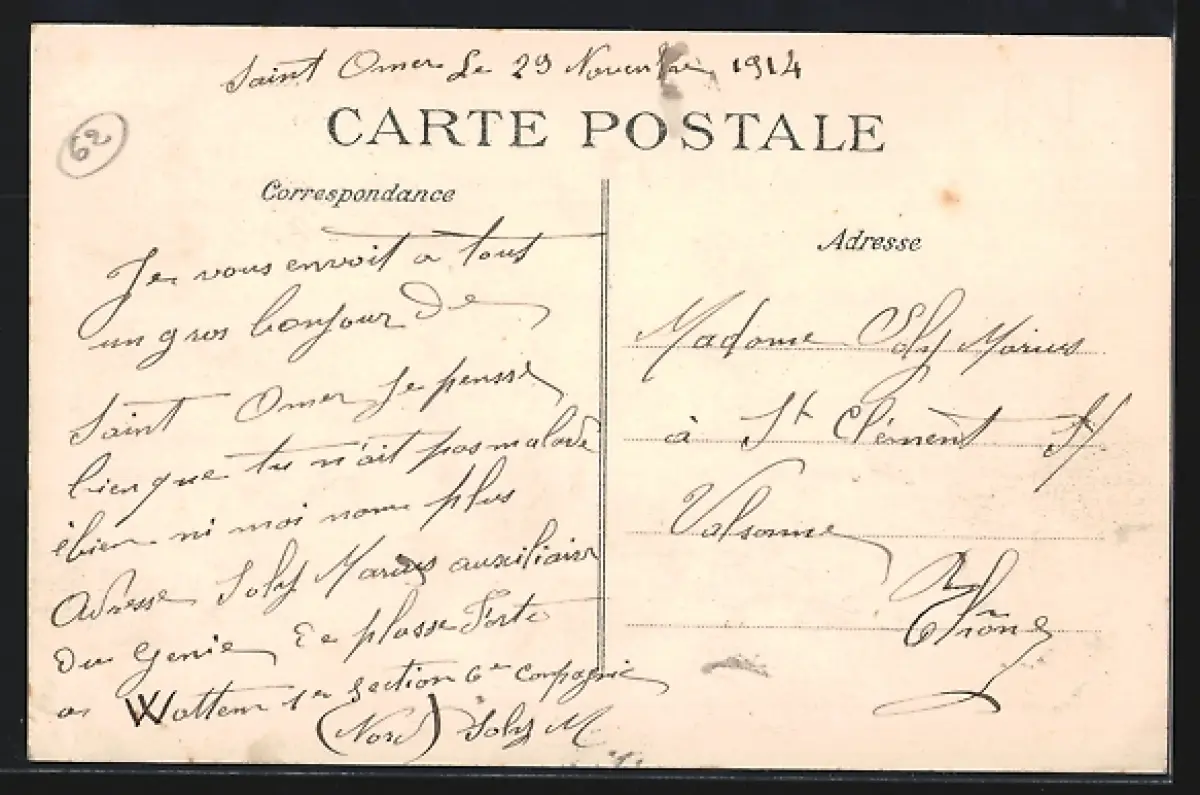 Saint Omer Le 29 Novembre 1914
62
CARTE POSTALE
Correspondance
Je vous envoit a tous
un gros bonjour De
Saint Omer Je pensse
bien que tu n'ait pas malade
èbien ni moi nom plus
Adresse Soly Marius auxiliaire
Du Genie De plasse Forte
a Watten 1er section 6em compagnie
(Nord) Soly M
Adresse
Madame Soly Marius
à St Clément St
Valsonne
Rhône